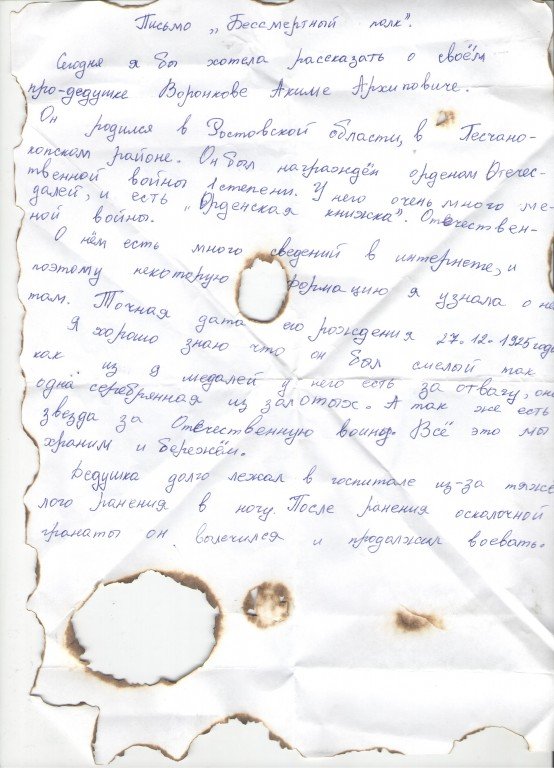 Письмо „Бессмертный полк".
Сегодня я бы хотела рассказать о своём
про-дедушке Воронкове Акиме Архиповиче.
Он родился в Ростовской области, в Песчано-
копском районе. Он был награждён орденом Отечес-
твенной войны 1 степени. У него очень много ме-
далей, и есть „Орденская книжка". Отечествен-
ной войны.
О нём есть много сведений в интернете, и
поэтому некоторую формацию я узнала о нём
там. Точная дата его рождения 27.12.1925 года
Я хорошо знаю что он был смелый так
как из 9 медалей у него есть за отвагу, она
одна серебрянная из залотых. А так же есть
звезда за Отечественную воину. Всё это мы
храним и бережём.
Дедушка долго лежал в госпитале из-за тяже
лого ранения в ногу. После ранения осколочной
гранаты он вылечился и продолжил воевать.